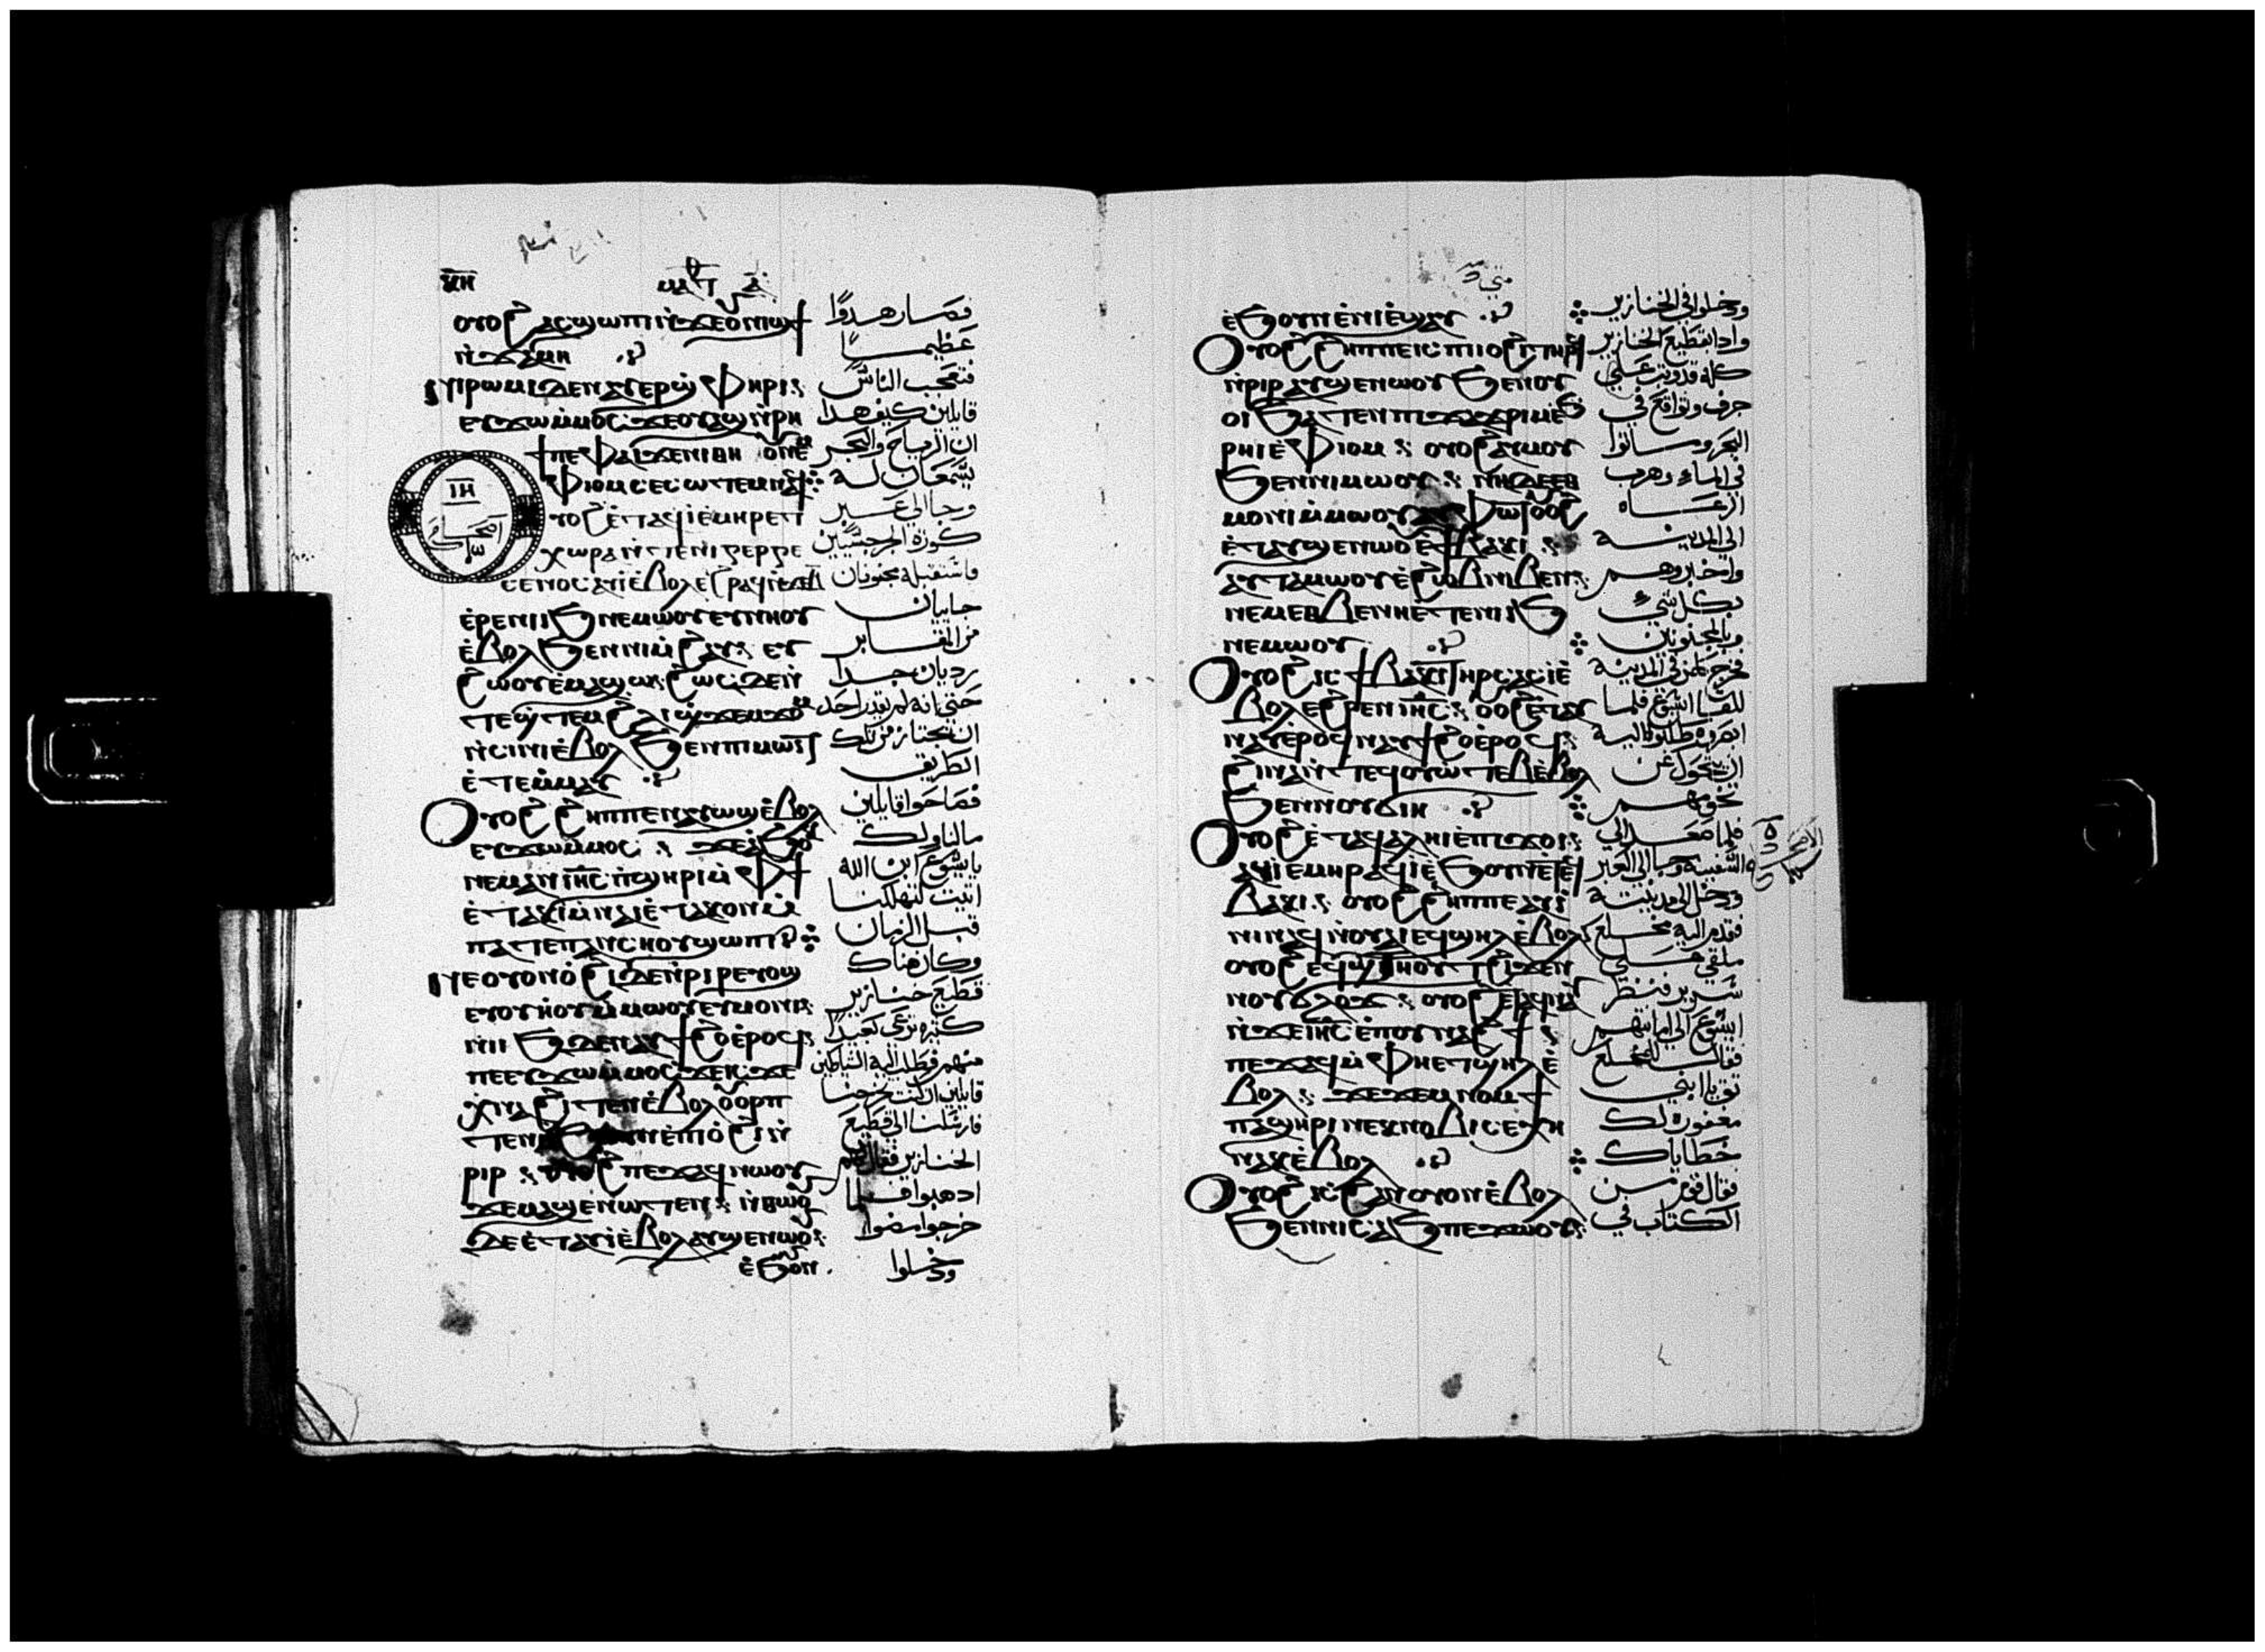 ⲟⲩⲟϩ ⲁⲥϣⲱⲡⲓ ⲛ̀ϫⲉ ⲟⲩⲛⲓϣϯ
ⲛ̀ϫⲁⲙⲏ
ⲛⲓⲣⲱⲙⲓ ⲇⲉ ⲛⲁⲩⲉⲣϣⲫⲏⲣⲓ
ⲉⲩϫⲱⲙ̀ⲙⲟⲥ ϫⲉ ⲟⲩⲁϣ ⲛ̀ⲣⲏ
ϯ ⲡⲉ ⲫⲁⲓ ϫⲉ ⲛⲓⲑⲏⲟⲩ ⲛⲉⲙ
ⲫⲓⲟⲙ ⲥⲉⲥⲱⲧⲉⲙ ⲛⲁϥ
ⲓⲏ
ⲟⲩⲟϩ ⲉ̀ⲧⲁϥⲓ̀ ⲉ̀ⲙⲏⲣ ⲉϯ
ⲭⲱⲣⲁ ⲛ̀ⲧⲉ ⲛⲓⲅⲉⲣⲅⲉ
ⲥⲉⲛⲟⲥ ⲁⲩⲓ̀ ⲉ̀ⲃⲟⲗ ⲉϩⲣⲁϥ ⲛ̀ϫⲉ ⲃ̅
ⲉ̀ⲣⲉ ⲛⲓⲓϧ ⲛⲉⲙⲱⲟⲩ ⲉⲩⲛⲏⲟⲩ
ⲉ̀ⲃⲟⲗ ϧⲉⲛ ⲛⲓⲙ̀ϩⲁⲩ ⲉⲩ
ϩⲱⲟⲩ ⲉ̀ⲙⲁϣⲱ ϩⲱⲥⲇⲉ ⲛ̀
ⲧⲉϣⲧⲉⲙ ϩⲗⲓ ϣϫⲉⲙϫⲟⲙ
ⲛ̀ⲥⲓⲛⲓ ⲉ̀ⲃⲟⲗ ϧⲉⲛ ⲡⲓⲙⲱⲓⲧ
ⲉ̀ⲧⲉⲙ̀ⲙⲁⲩ
ⲟⲩⲟϩ ϩⲏⲡⲡⲉ ⲛⲁⲩⲱϣ ⲉ̀ⲃⲟⲗ
ⲉⲩϫⲱⲙ̀ⲙⲟⲥ ϫⲉ ⲁϧⲟⲕ
ⲛⲉⲙⲁⲛ ⲓⲏ̅ⲥ̅ ⲡ̀ϣⲏⲣⲓ ⲙ̀ⲫϯ
ⲉ̀ⲧⲁⲕⲓ̀ ⲙ̀ⲛⲁⲓ ⲉ̀ⲧⲁⲕⲟⲛ ⲙ̀
ⲡⲁⲧⲉ ⲡⲁⲛⲥⲏⲟⲩ ϣⲱⲡⲓ
ⲛⲉ ⲟⲩⲟⲛ ⲟ̀ϩⲓ ⲇⲉ ⲛ̀ⲣⲓⲣ ⲉⲩⲟϣ
ⲉⲩⲟⲩⲏⲟⲩ ⲙ̀ⲙⲱⲟⲩ ⲉⲩⲙⲟⲛⲓ
ⲛⲓⲓϧ ⲇⲉ ⲛⲁⲩϯϩⲟ ⲉ̀ⲣⲟϥ
ⲡⲉ ⲉⲩϫⲱⲙ̀ⲙⲟⲥ ϫⲉ ⲓⲥϫⲉ
ⲭⲛⲁϩⲓⲧⲉⲛ ⲉ̀ⲃⲟⲗ ⲟⲩⲟⲣⲡ
ⲧⲉⲛ ⲉ̀ⲡⲓⲟ̀ϩⲓ ⲛ̀
ⲣⲓⲣ ⲟⲩⲟϩ ⲡⲉϫⲁϥ ⲛⲱⲟⲩ
ϫⲉ ⲙⲁϣⲉⲛⲱⲧⲉⲛ ⲛ̀ⲑⲱⲟⲩ
ⲇⲉ ⲉ̀ⲧⲁⲩⲓ̀ ⲉ̀ⲃⲟⲗ ⲁⲩϣⲉⲛⲱⲟⲩ
ⲉ̀ϧⲟⲩⲛ
فصار هدوًا
عظيمًا
فتعجب الناس
قايلين كيف هدا
ان الرياح والبحر
يسمعان له
وجا الى عبر
كورة الجرجسيين
فاستقبله مجنونان
جايان
من المقابر
رديان جدا
حتى انه لم يقدر احد
ان يجتاز من تلك
الطريق
فصاحوا قايلين
مالنا ولك
يا يسوع ابن الله
اتيت لتهلكنا
قبل الزمان
وكان هناك
قطيع خنازير
كثيره ترعى بعيدًا
منهم فطلب اليه الشياطين
قايلين ان كنت تخرجنا
فارسلنا الى قطيع
الخنازير فقال لهم
ادهبوا فلما
خرجوا مضوا
ودخلوا
متى
ⲉ̀ϧⲟⲩⲛ ⲉ̀ⲛⲓⲉ̀ϣⲁⲩ
ⲟⲩⲟϩ ϩⲏⲡⲡⲉ ⲓⲥ ⲡⲓⲟϩⲓ ⲧⲏⲣϥ
ⲛ̀ⲣⲓⲣ ⲁⲩϣⲉⲛⲱⲟⲩ ϧⲉⲛ ⲟⲩ
ⲟⲓ ϧⲁⲧⲉⲛ ⲡⲓϫⲁϫⲣⲓⲙ ⲉ̀ϧ
ⲣⲏⲓ ⲉ̀ⲫⲓⲟⲙ ⲟⲩⲟϩ ⲁⲩⲙⲟⲩ
ϧⲉⲛ ⲛⲓⲙⲱⲟⲩ ⲛⲏ ⲇⲉ ⲉⲑ
ⲙⲟⲛⲓ ⲙ̀ⲙⲱⲟⲩ ⲁⲩⲫⲱⲧ ⲟⲩⲟϩ
ⲉ̀ⲧⲁⲩϣⲉⲛⲱⲟⲩ ⲉ̀ϯⲃⲁⲕⲓ
ⲁⲩⲧⲁⲙⲱⲟⲩ ⲉ̀ϩⲱⲃ ⲛⲓⲃⲉⲛ
ⲛⲉⲙ ⲉⲑⲃⲉ ⲛⲏⲉ̀ⲧⲉ ⲛⲓⲓϧ
ⲛⲉⲙⲱⲟⲩ
ⲟⲩⲟϩ ⲓⲥ ϯⲃⲁⲕⲓ ⲧⲏⲣⲥ ⲁⲥⲓ̀ ⲉ̀
ⲃⲟⲗ ⲉϩⲣⲉⲛ ⲓⲏ̅ⲥ̅ ⲟⲩⲟϩ ⲉ̀ⲧⲁⲩ
ⲛⲁⲩ ⲉ̀ⲣⲟϥ ⲛⲁⲩϯϩⲟ ⲉ̀ⲣⲟϥ
ϩⲓⲛⲁ ⲛ̀ⲧⲉϥⲟⲩⲱⲧⲉⲃ ⲉ̀ⲃⲟⲗ
ϧⲉⲛ ⲛⲟⲩϭⲓⲏ
ⲟⲩⲟϩ ⲉ̀ⲧⲁϥⲁⲗⲏⲓ ⲉ̀ⲡϫⲟⲓ
ⲁϥⲓ̀ ⲉ̀ⲙⲏⲣ ⲁϥⲓ̀ ⲉ̀ϧⲟⲩⲛ ⲉ̀ⲧⲉϥ
ⲃⲁⲕⲓ ⲟⲩⲟϩ ϩⲏⲡⲡⲉ ⲁⲩⲓ̀
ⲛⲓ ⲛⲁϥ ⲛ̀ⲟⲩⲁⲓ ⲉϥϣⲏⲗ ⲉ̀ⲃⲟⲗ
ⲟⲩⲟϩ ⲉϥϣⲧⲏⲟⲩⲧ ϩⲓϫⲉⲛ
ⲟⲩϭⲗⲟϫ ⲟⲩⲟϩ ⲉ̀ⲧⲁϥⲛⲁⲩ
ⲛ̀ϫⲉ ⲓⲏ̅ⲥ̅ ⲉ̀ⲡⲟⲩⲛⲁϩϯ
ⲡⲉϫⲁϥ ⲙ̀ⲫⲏⲉⲧϣⲏⲗ ⲉ̀
ⲃⲟⲗ ϫⲉ ϫⲉⲙⲛⲟⲙϯ
ⲡⲁϣⲏⲣⲓ ⲛⲉⲕⲛⲟⲃⲓ ⲥⲉⲭⲏ
ⲛⲁⲕ ⲉ̀ⲃⲟⲗ
ⲟⲩⲟϩ ⲓⲥ ϩⲁⲛⲟⲩⲟⲛ ⲉ̀ⲃⲟⲗ
ϧⲉⲛ ⲛⲓⲥⲁϧ ⲡⲉϫⲱⲟⲩ
ودخلوا في الخنازير
وادا بقطيع الخنازير
كله قد وثب على
جرف وتواقع في
البحر وماتوا
في الماء وهرب
الرعاه
الى المدينه
واخبروهم
بكل شي
وبالمجنونين
فخرج كل من في المدينه
للقا ايسوع فلما
ابصروه طلبوا اليه
ان يتحول عن
تخومهم
فلما صعد الى
السفينه وجا الى العبر
ودخل الى مدينته
فقدم اليه مخلع
ملقى على
سرير فنظر
ايسوع الى امانتهم
فقال للمخلع
ثق يا ابني
مغفوره لك
خطاياك
فقال قوم من
الكتاب في